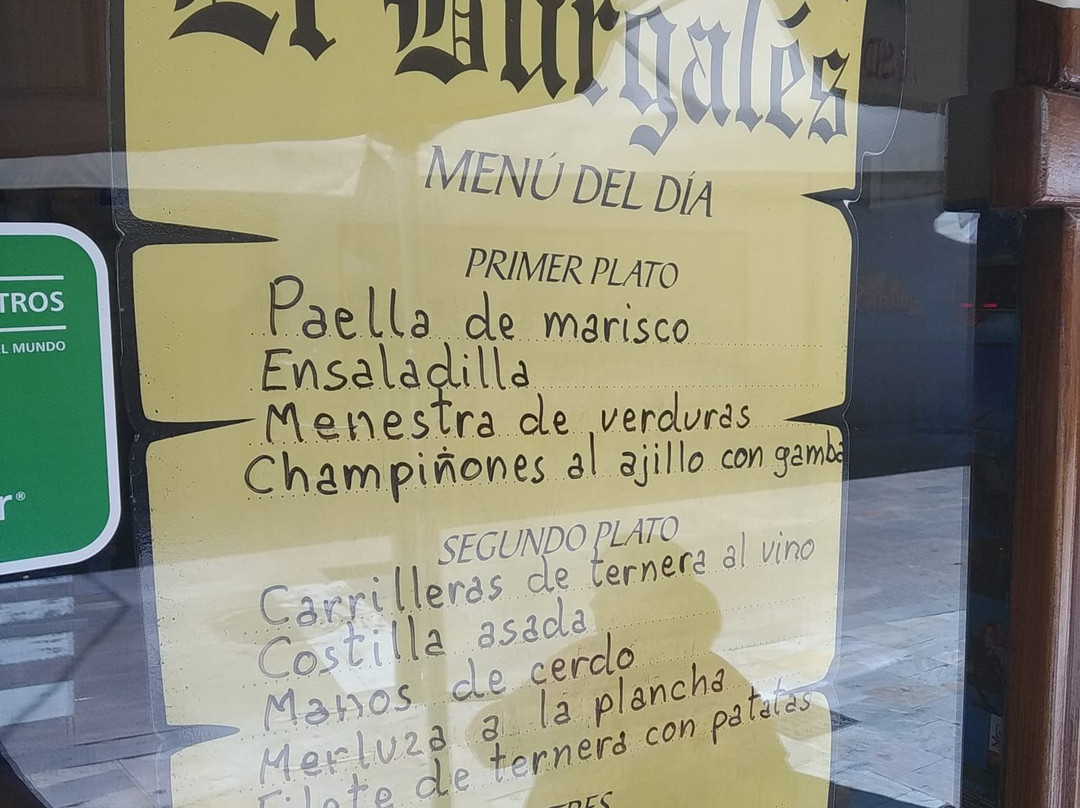 El Burgalés
MENÚ DEL DÍA
PRIMER PLATO
Paella de marisco
Ensaladilla
Menestra de verduras
Champiñones al ajillo con gamba
SEGUNDO PLATO
Carrilleras de ternera al vino
Costilla asada
Manos de cerdo
Merluza a la plancha
Filete de ternera con patatas
TROS
EL MUNDO
r®